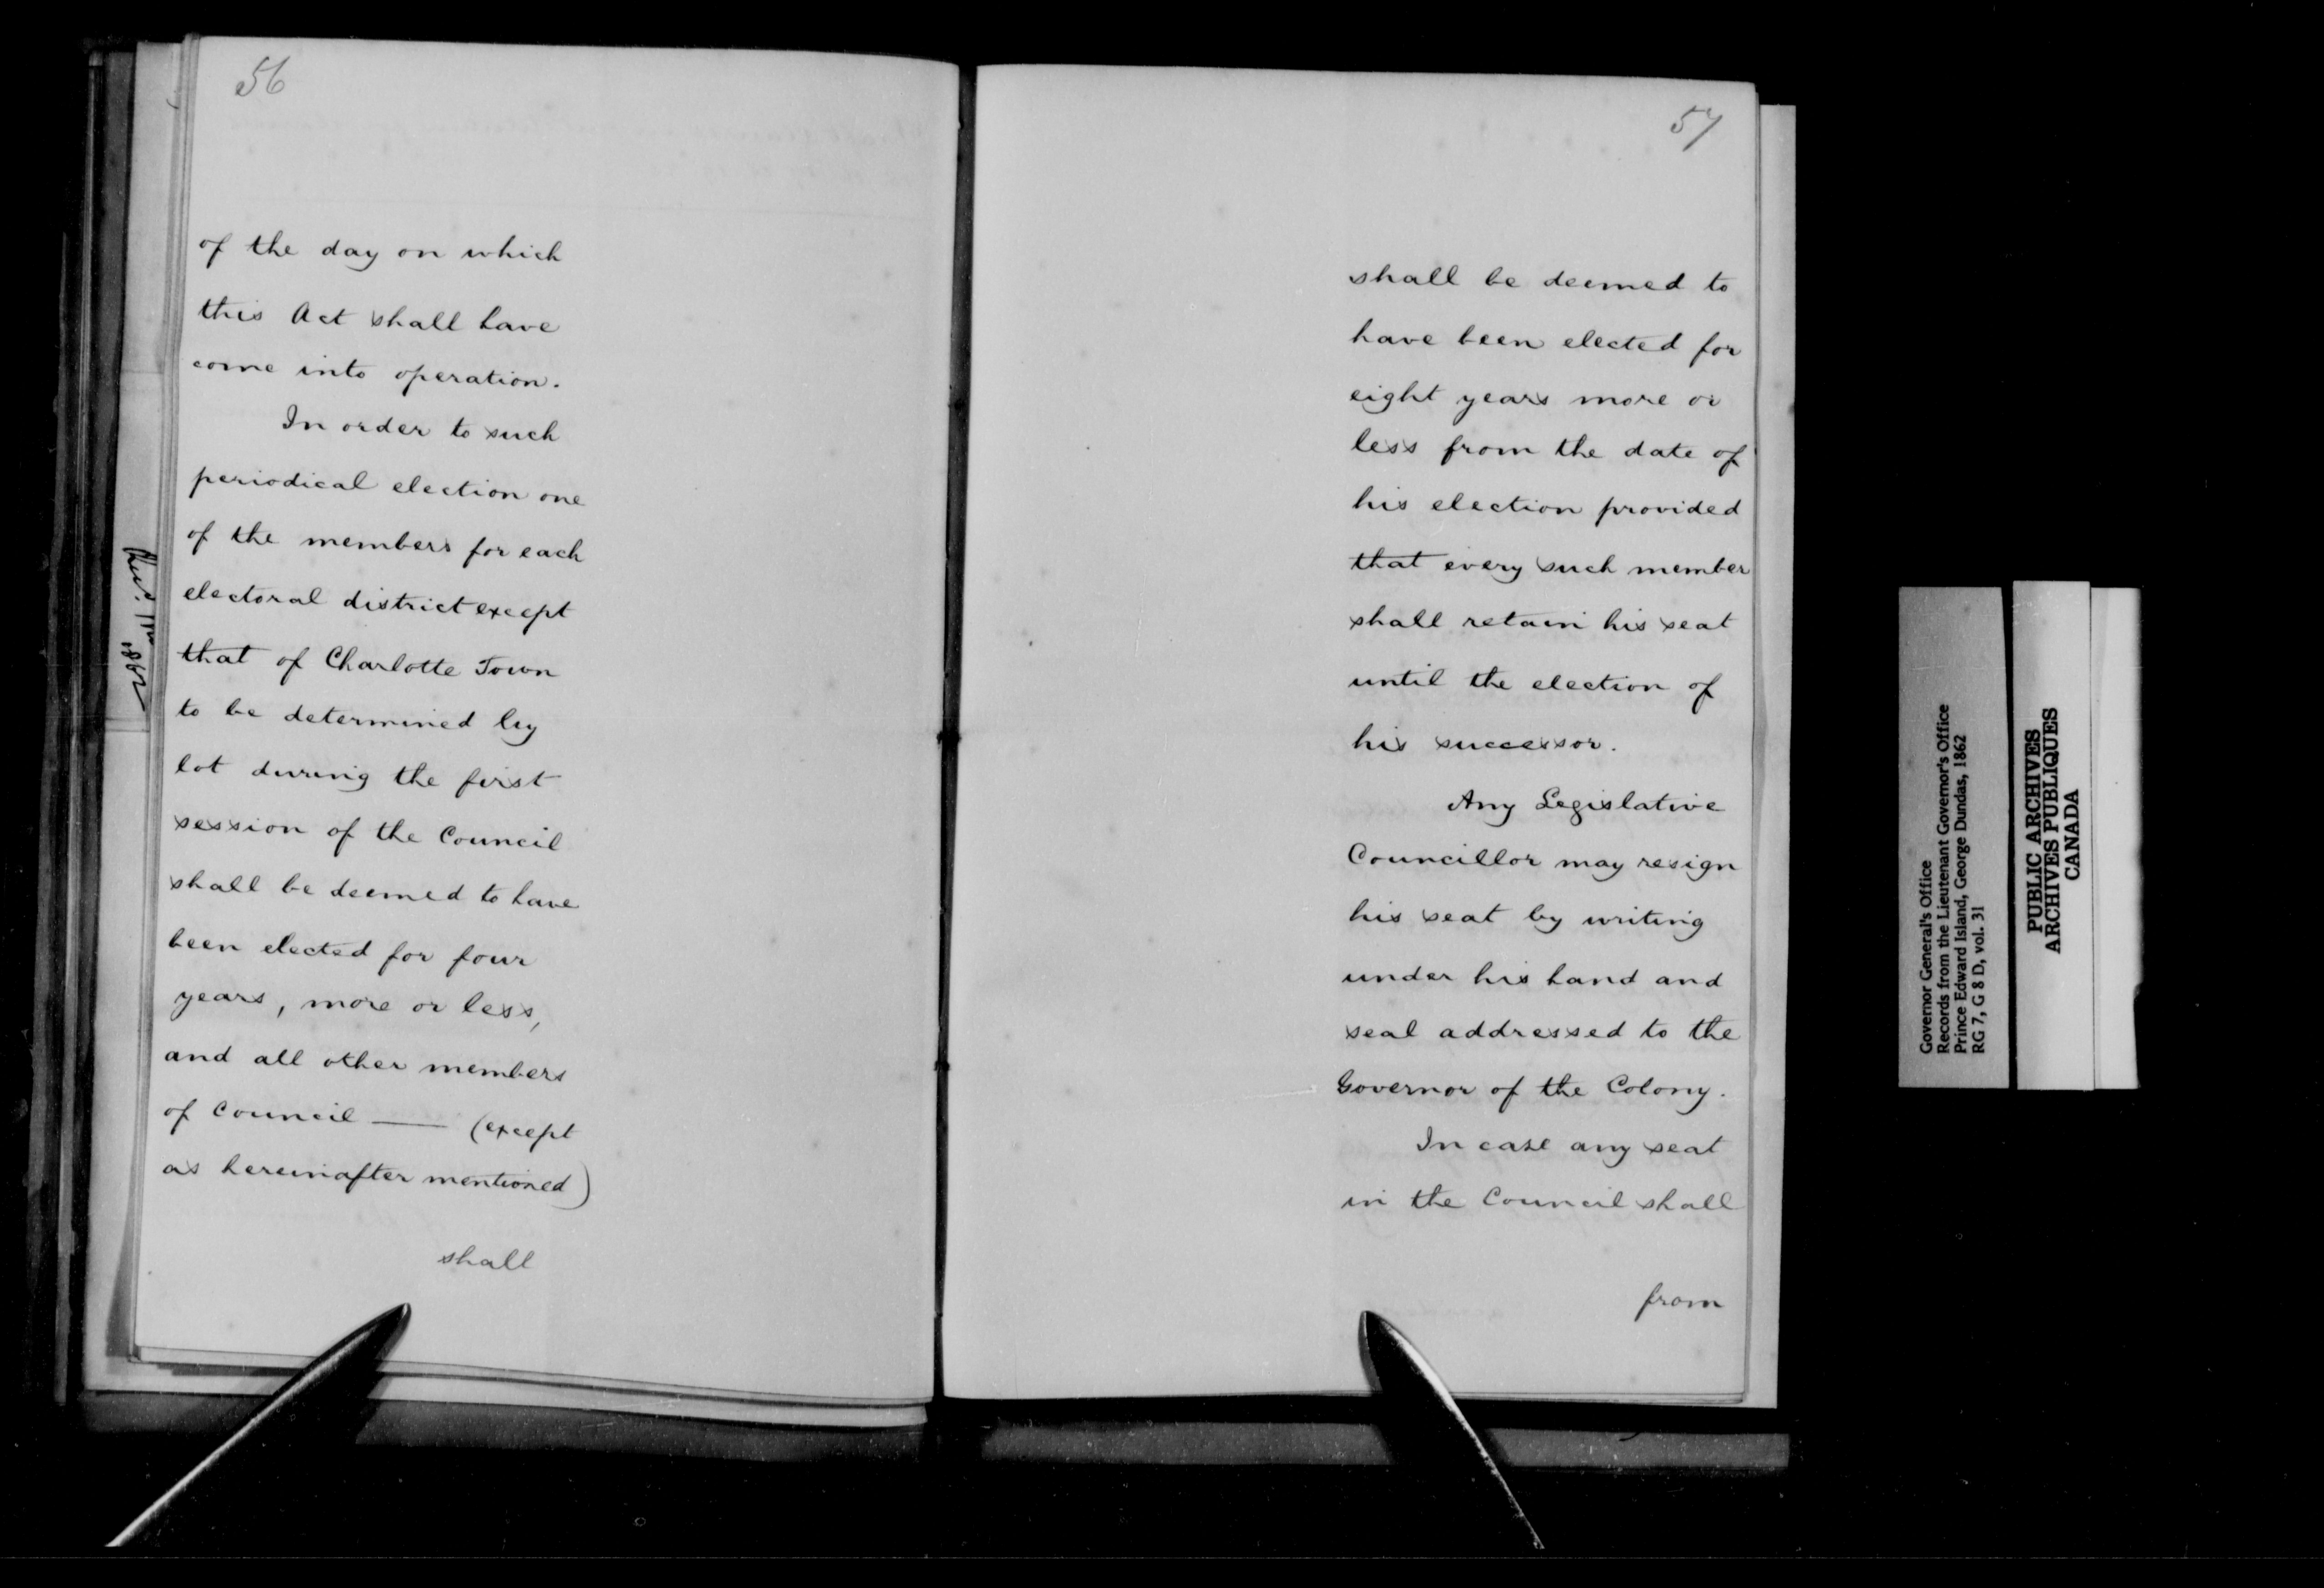 56
of the day on which
this Act shall have
come into operation.
In order to such
periodical election one
of the members for each
electoral district except
that of Charlotte Town
to be determined by
lot during the first
session of the Council
shall be deemed to have
been elected for four
years, more or less,
and all other members
of Council —— (except
as hereinafter mentioned)
shall
57
shall be deemed to
have been elected for
eight years more or
less from the date of
his election provided
that every such member
shall retain his seat
until the election of
his successor.
Any Legislative
Councillor may resign
his seat by writing
under his hand and
seal addressed to the
Governor of the Colony.
In case any seat
in the Council shall
from
Governor General's Office
Records from the Lieutenant Governor's Office
Prince Edward Island, George Dundas, 1862
RG 7, G 8 D, vol. 31
PUBLIC ARCHIVES
ARCHIVES PUBLIQUES
CANADA